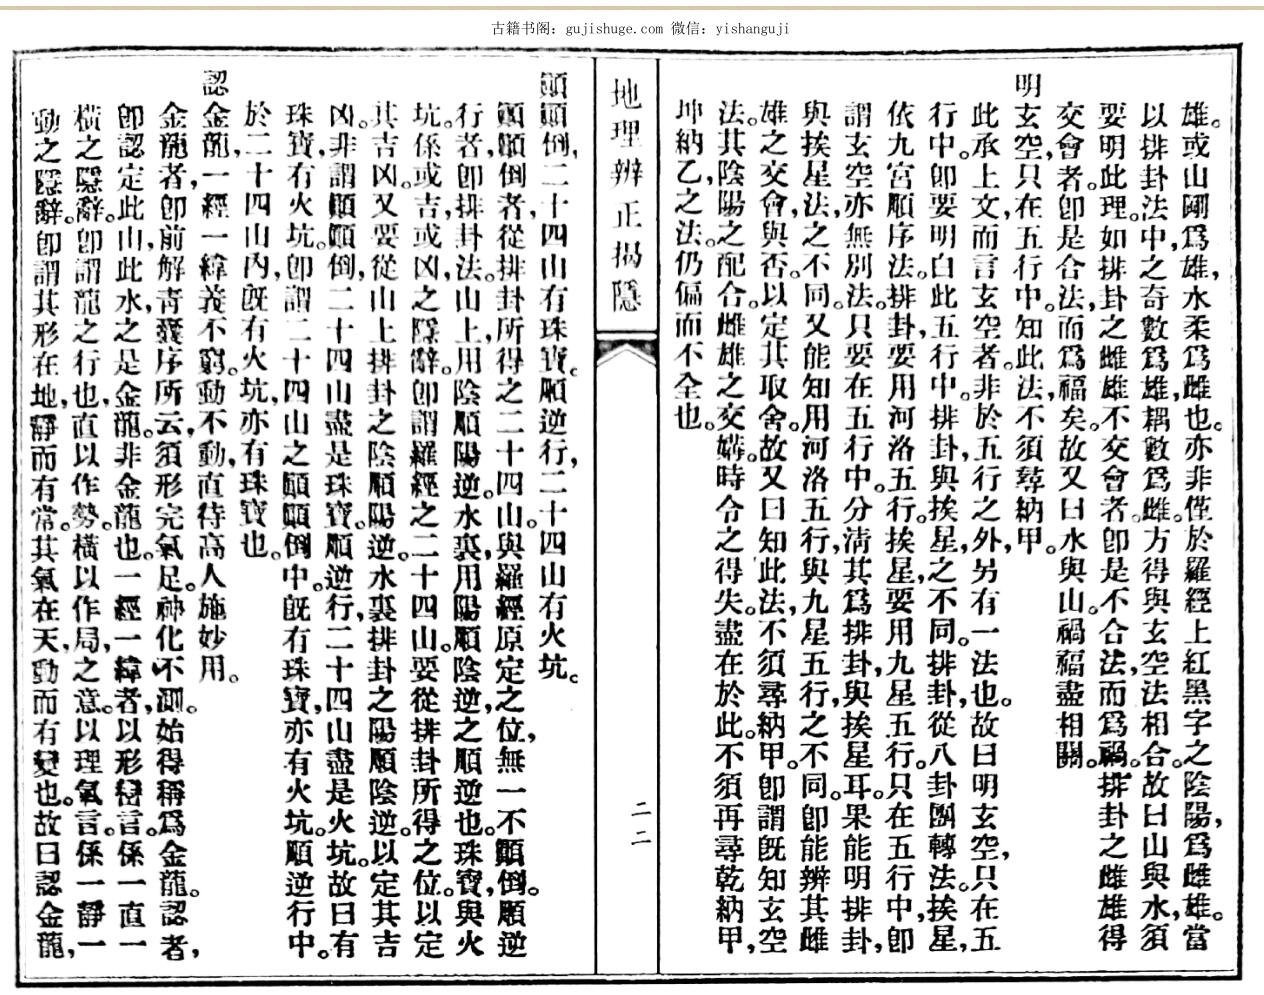 古籍书阁：gujishuge.com 微信：yishanguji
雄。或山剛爲雄，水柔爲雌也。亦非僅於羅經上紅黑字之陰陽，爲雌雄。當
以排卦法中，之奇數爲雄，耦數爲雌。方得與玄空法相合。故曰山與水，須
要明此理。如排卦之雌雄，不交會者。卽是不合法，而爲禍。排卦之雌雄得
交會者。卽是合法，而爲福矣。故又曰水與山。禍福盡相關。
明玄空，只在五行中。知此法，不須尋納甲。
此承上文，而言玄空者。非於五行之外，另有一法也。故曰明玄空，只在五
行中。卽要明白此五行中。排卦，與挨星，之不同。排卦，從八卦團轉法。挨星，
依九宮順序法。排卦，要用河洛五行。挨星，要用九星五行。只在五行中，卽
謂玄空亦無別法。只要在五行中。分淸其爲排卦，與挨星耳。果能明排卦，
與挨星法，之不同。又能知用河洛五行，與九星五行，之不同。卽能辨其雌
雄之交會，與否。以定其取舍。故又曰知此法，不須尋納甲。卽謂旣知玄空
法。其陰陽之配合。雌雄之交媾。時令之得失。盡在於此。不須再尋乾納甲，
坤納乙，之法。仍偏而不全也。
地理辨正揭隱
二二
顚顚倒，二十四山有珠寶。順逆行，二十四山有火坑。
顚顚倒者，從排卦所得之二十四山。與羅經原定之位，無一不顚倒。順逆
行者，卽排卦法。山上，用陰順陽逆。水裏，用陽順陰逆，之順逆也。珠寶，與火
坑。係或吉，或凶，之隱辭。卽謂羅經之二十四山。要從排卦所得之位。以定
其吉凶。又要從山上排卦之陰順陽逆。水裏排卦之陽順陰逆。以定其吉
凶。非謂顚顚倒，二十四山盡是珠寶。順逆行，二十四山盡是火坑。故曰有
珠寶，有火坑。卽謂二十四山之顚顚倒中。旣有珠寶，亦有火坑。順逆行中。
於二十四山內，旣有火坑，亦有珠寶也。
認金龍，一經一緯義不窮。動不動，直待高人施妙用。
金龍者，卽前解靑囊序所云，須形完氣足。神化不測。始得稱爲金龍。認者，
卽認定此山，此水，之是金龍。非金龍也。一經一緯者，以形巒言。係一直一
橫之隱辭。卽謂龍之行也，直以作勢。橫以作局，之意。以理氣言。係一靜一
動之隱辭。卽謂其形在地，靜而有常。其氣在天，動而有變也。故曰認金龍，